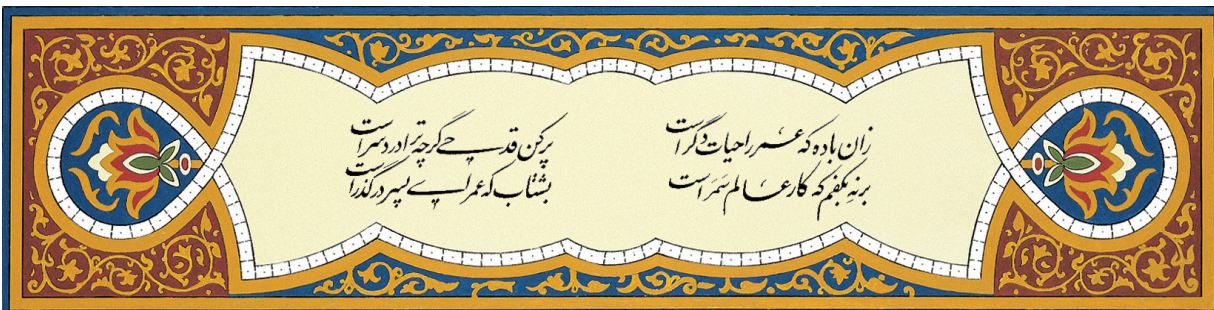 زان باده که عمر را حیات دگر است پر کن قدحی گرچه ترا دردسر است
بر نه بکفم که کار عالم سَمَر است بشتاب که عمر اے پسر در گذر است